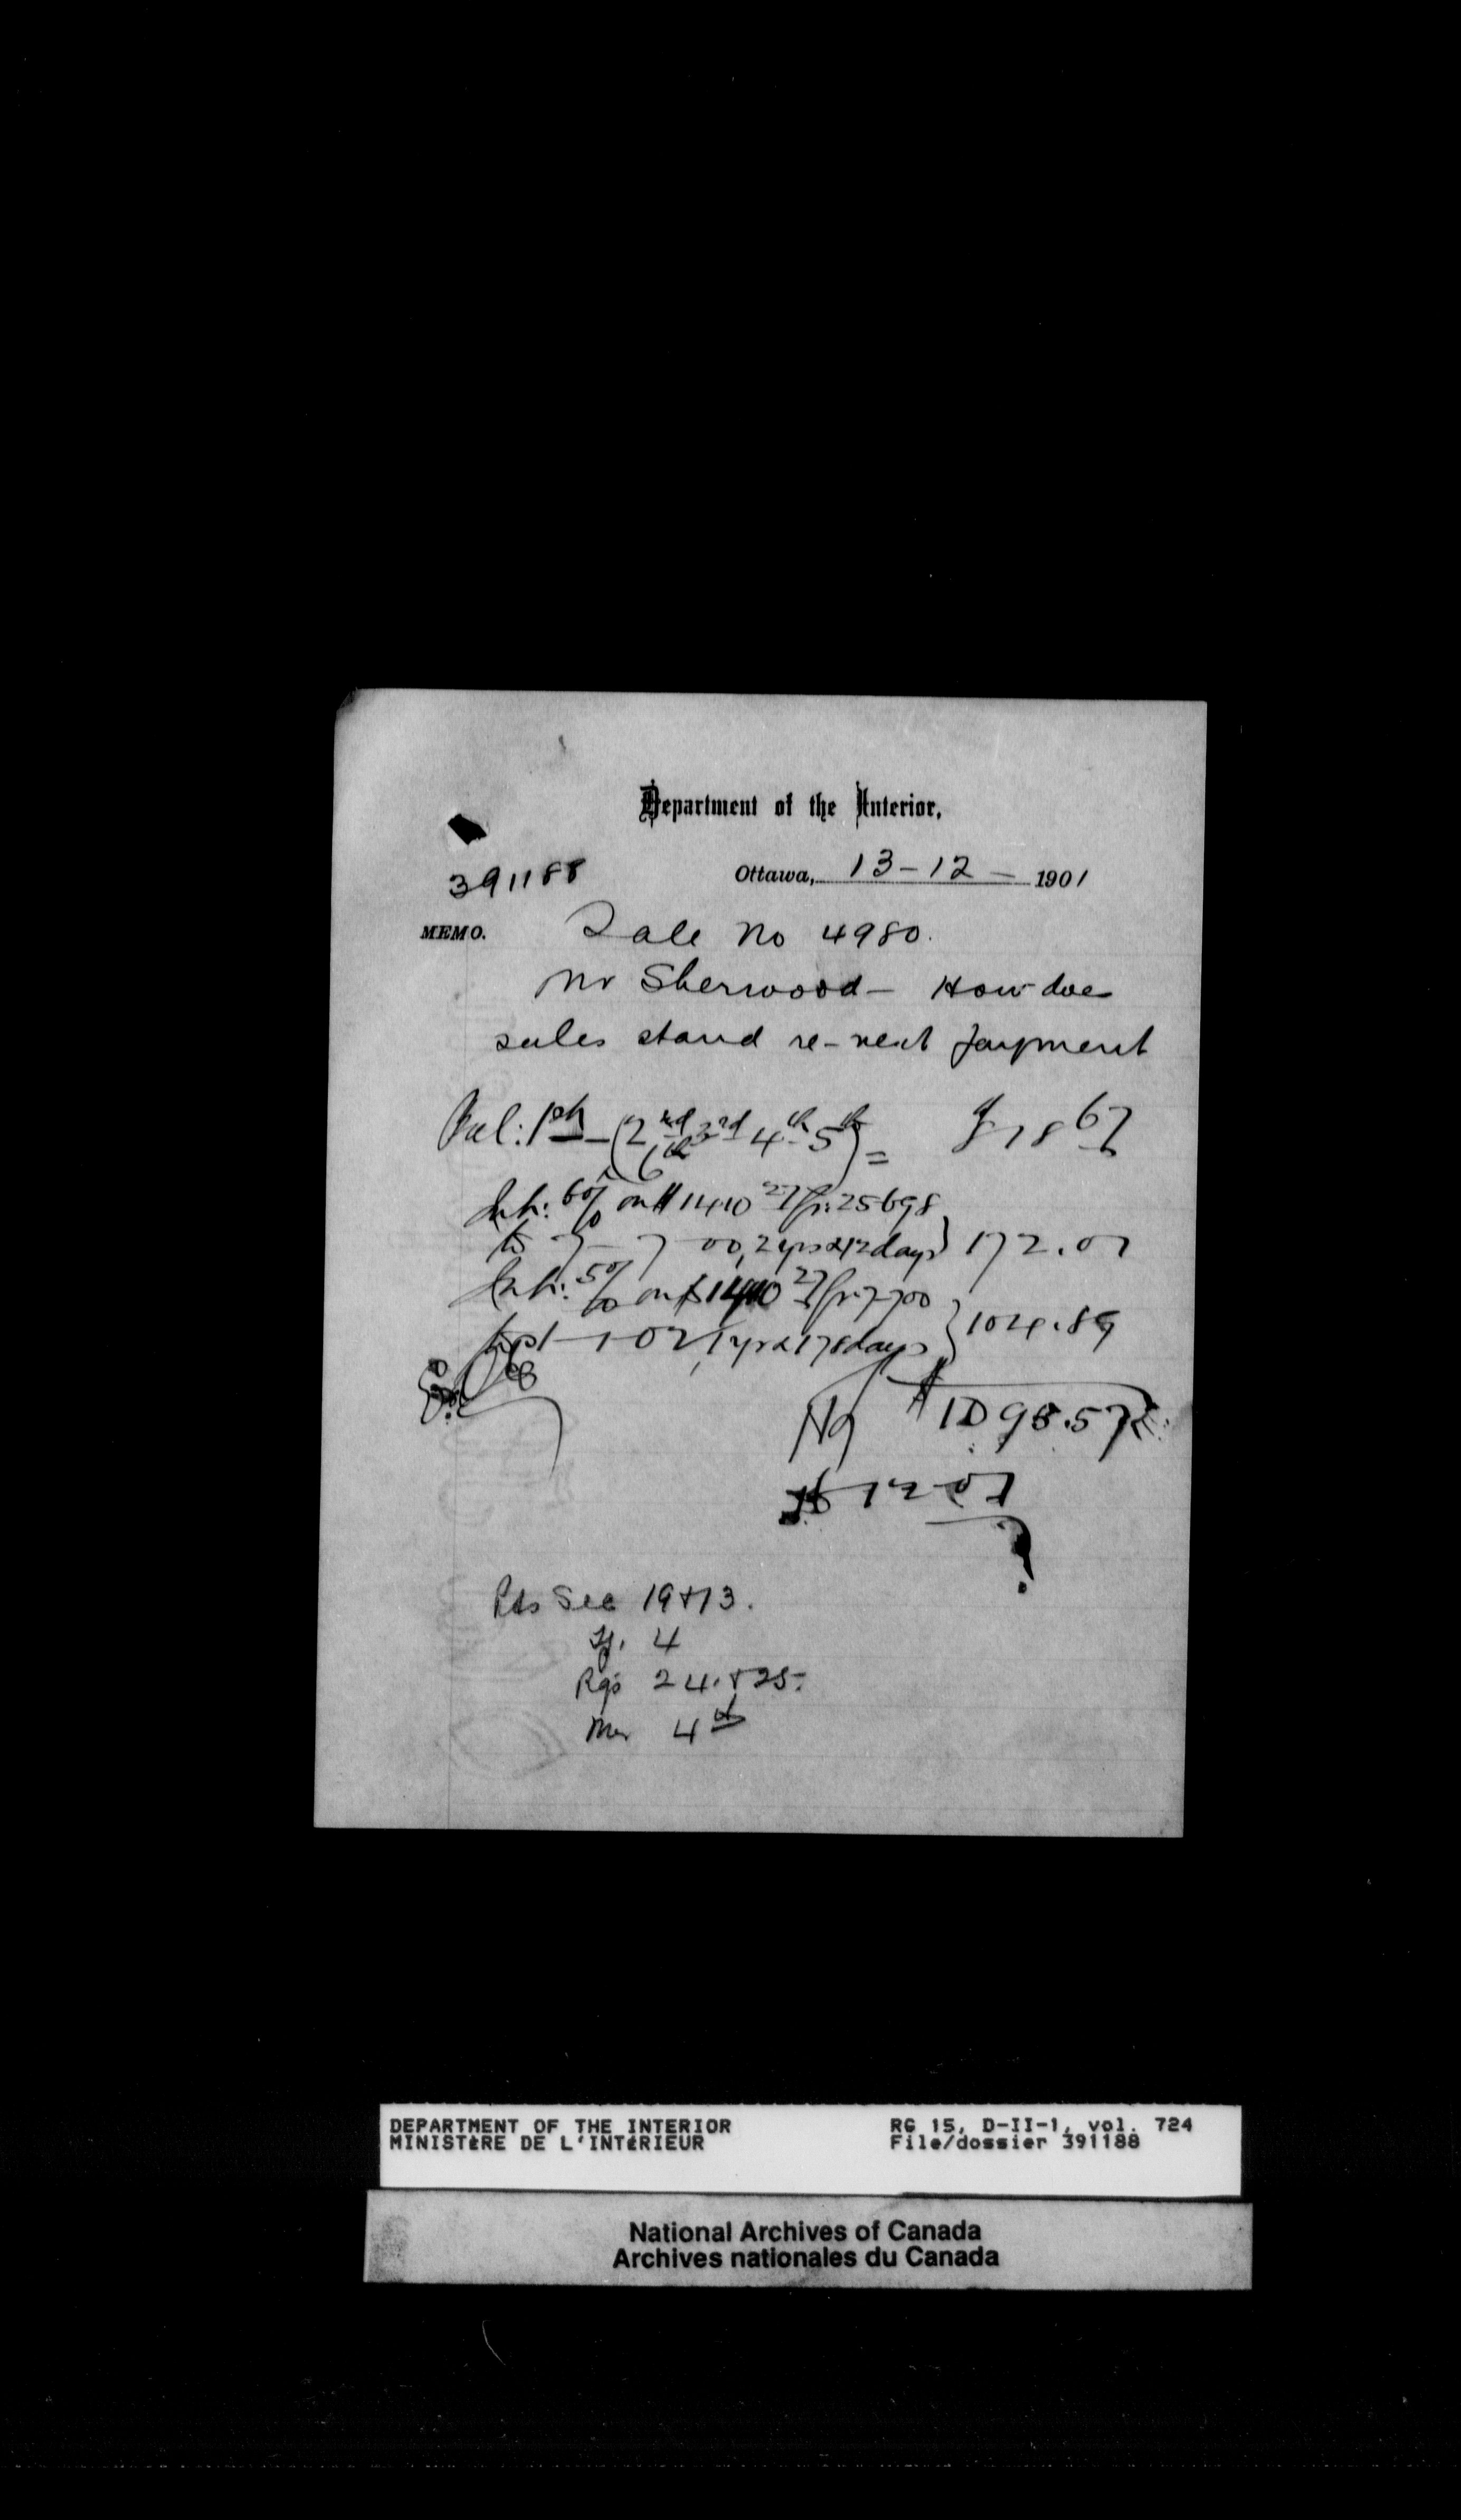 Department of the Interior,
391188
Ottawa, 13-12- 1901
MEMO. Sale No 4980.
Mr Sherwood - How does
sales stand re-next payment
Bal: 1st - (2nd 3rd 4th 5th) =
6th
$818 67
Int: 6% on $1410 27 fr: 25-6-98
to 7-7-00, 2 yrs & 12 days } 172.07
Int: 5% on $1410 27 fr: 7-7-00
to 1-1-02, 1 yr & 178 days } 104.89
$1095.57
Pts Sec 19 & 13.
Tp. 4
Rgs 24 & 25.
Mer 4th
DEPARTMENT OF THE INTERIOR
MINISTÈRE DE L'INTÉRIEUR
RG 15, D-II-1, vol. 724
File/dossier 391188
National Archives of Canada
Archives nationales du Canada